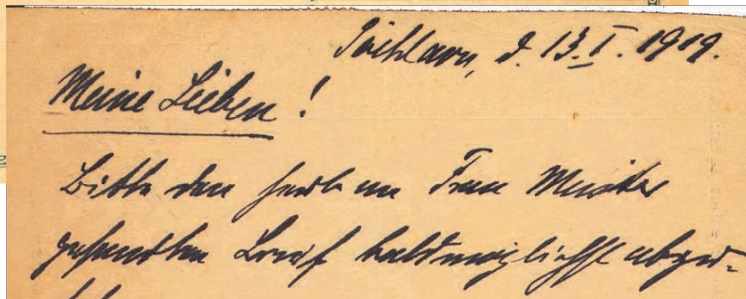 Pöchlarn, d. 13. I. 1919.
Meine Lieben!
Bitte den heute an Frau Meister
gesandten Brief baldmöglichst abzu-